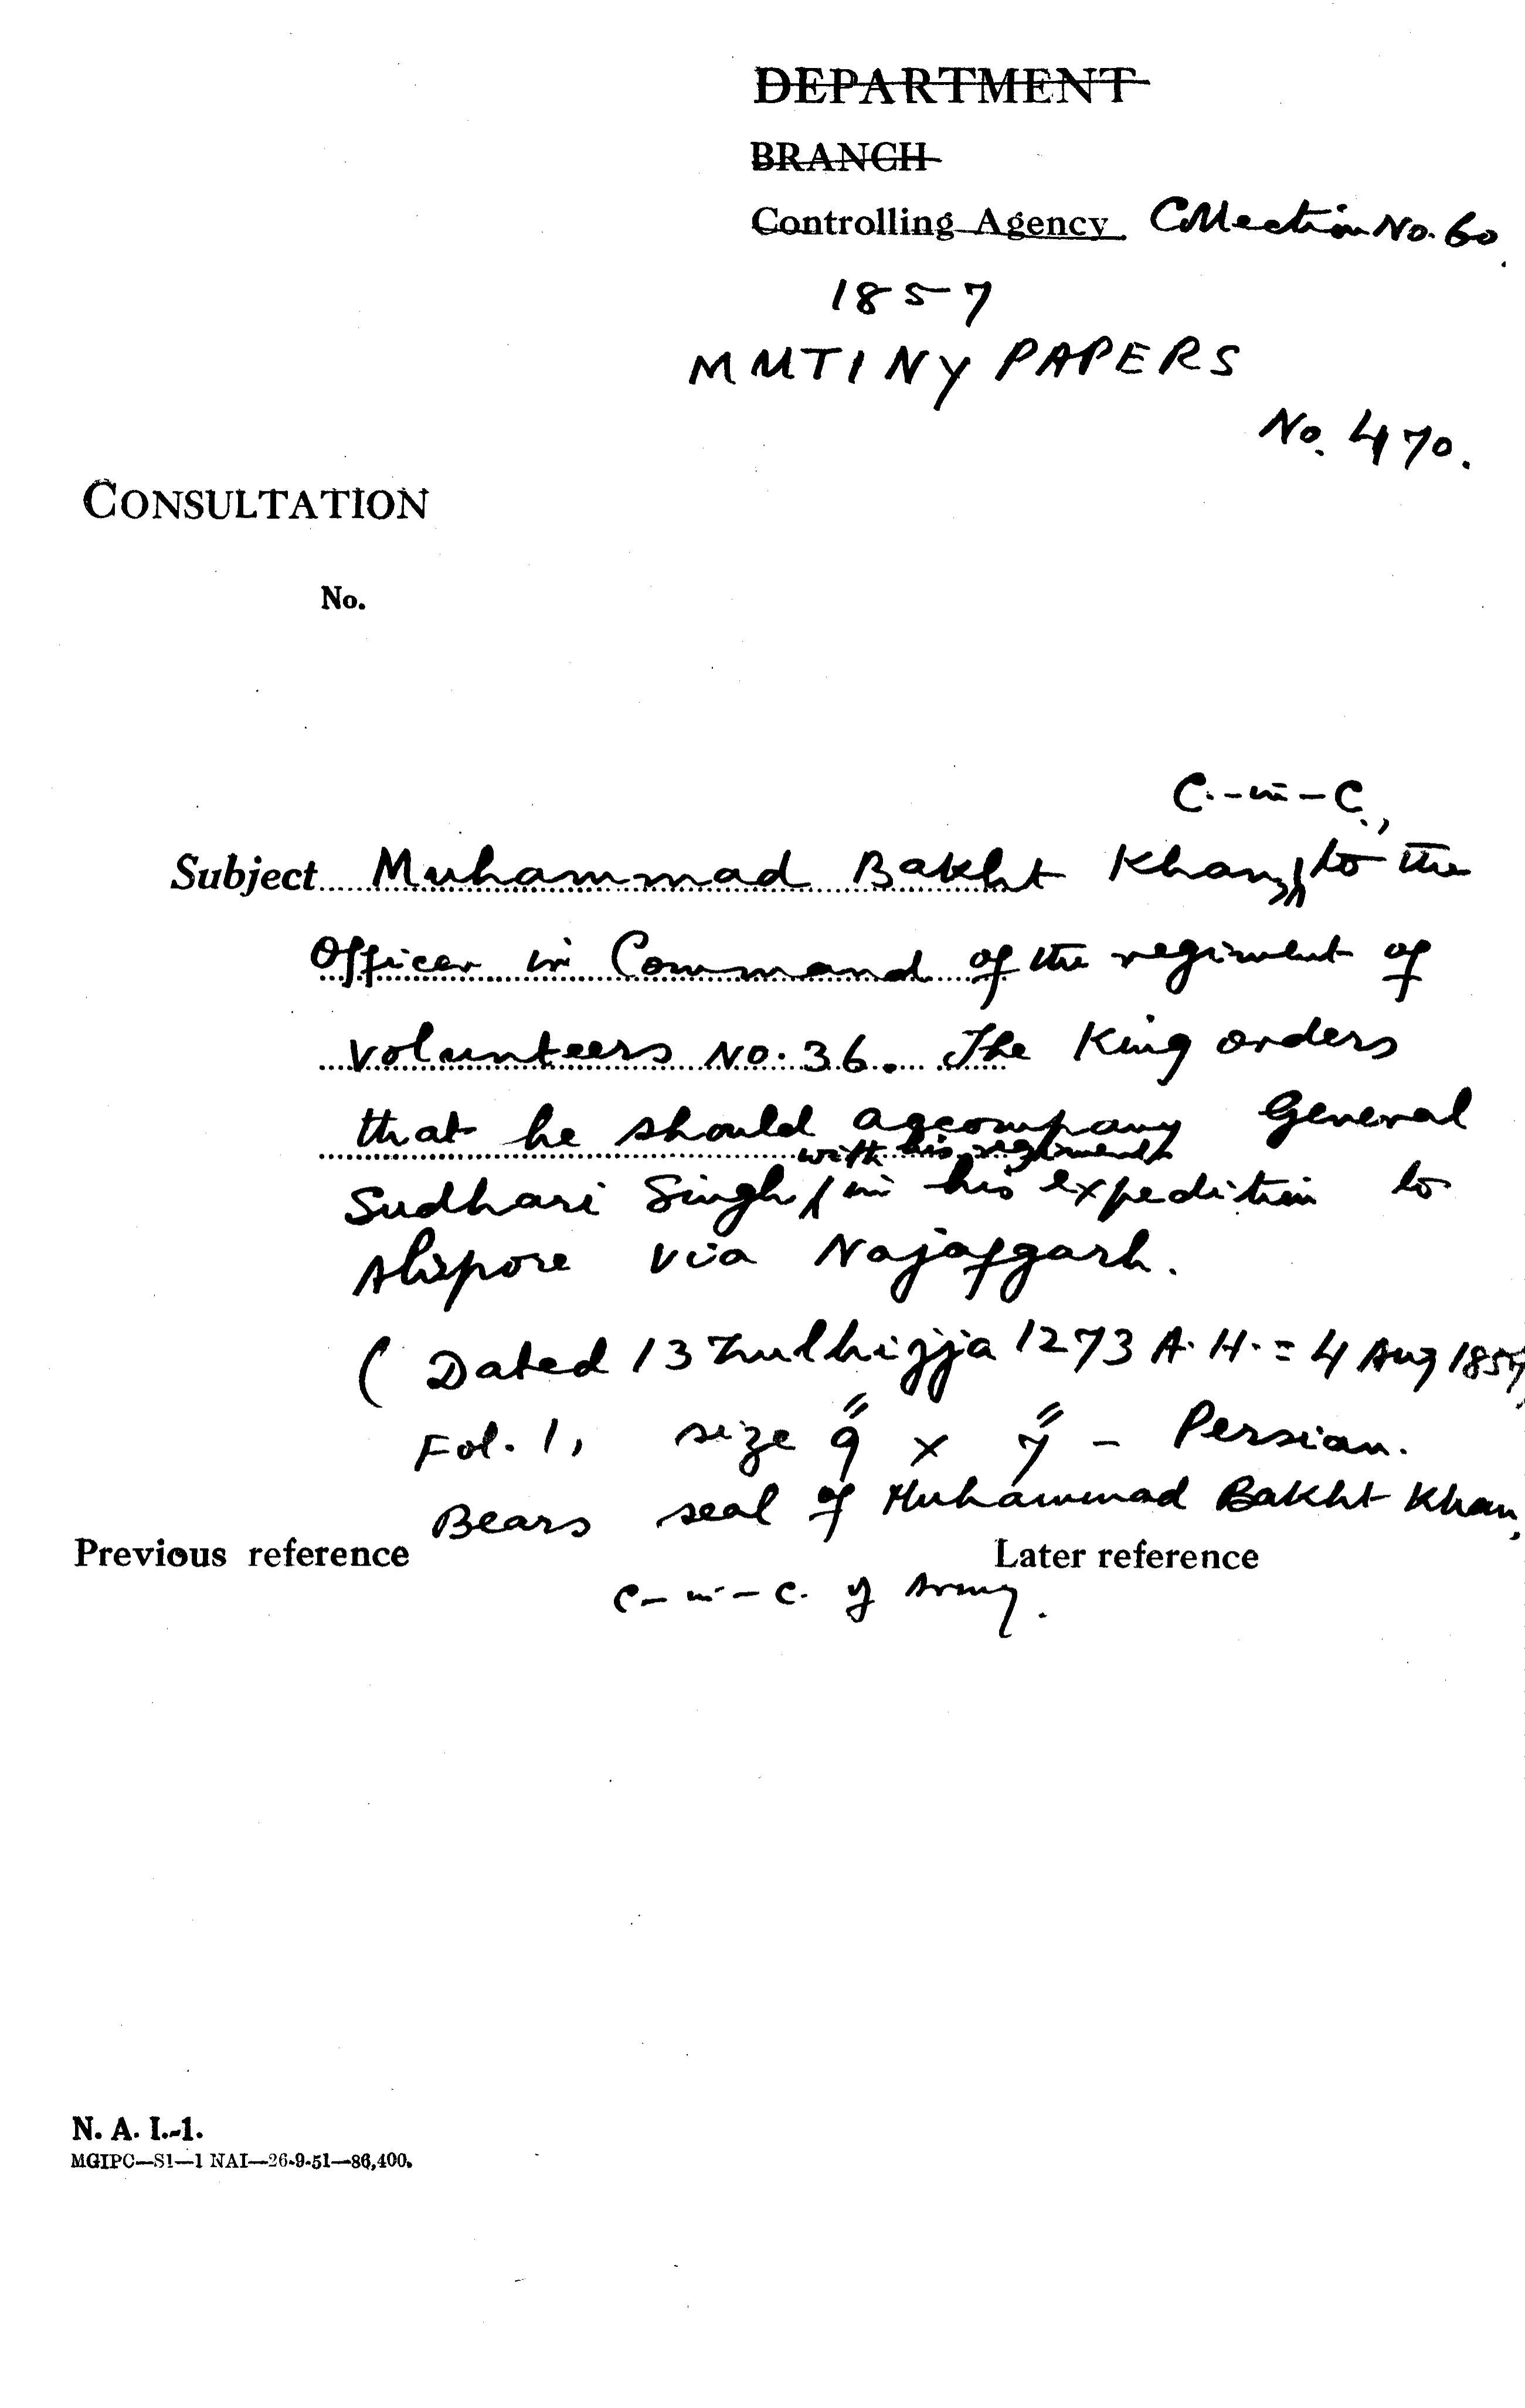 DEPARTMENT
BRANCH
Controlling Agency Collection No. 60.
1857
MUTINY PAPERS
No. 470.
CONSULTATION
No.
C.-in-C.,
Subject Muhammad Bakht Khan, to the
Officer in Command of the regiment of
volunteers No. 36. The King orders
that he should accompany General
with his regiment
Sudhari Singh in his expedition to
Alipore via Najafgarh.
( Dated 13 Zulhijja 1273 A.H. = 4 Aug 1857,
Fol. 1, size 9" x 7" - Persian.
Bears seal of Muhammad Bakht Khan,
Previous reference Later reference
C-in-C. of Army.
N. A. I.-1.
MGIPC—S1—1 NAI—26-9-51—86,400.